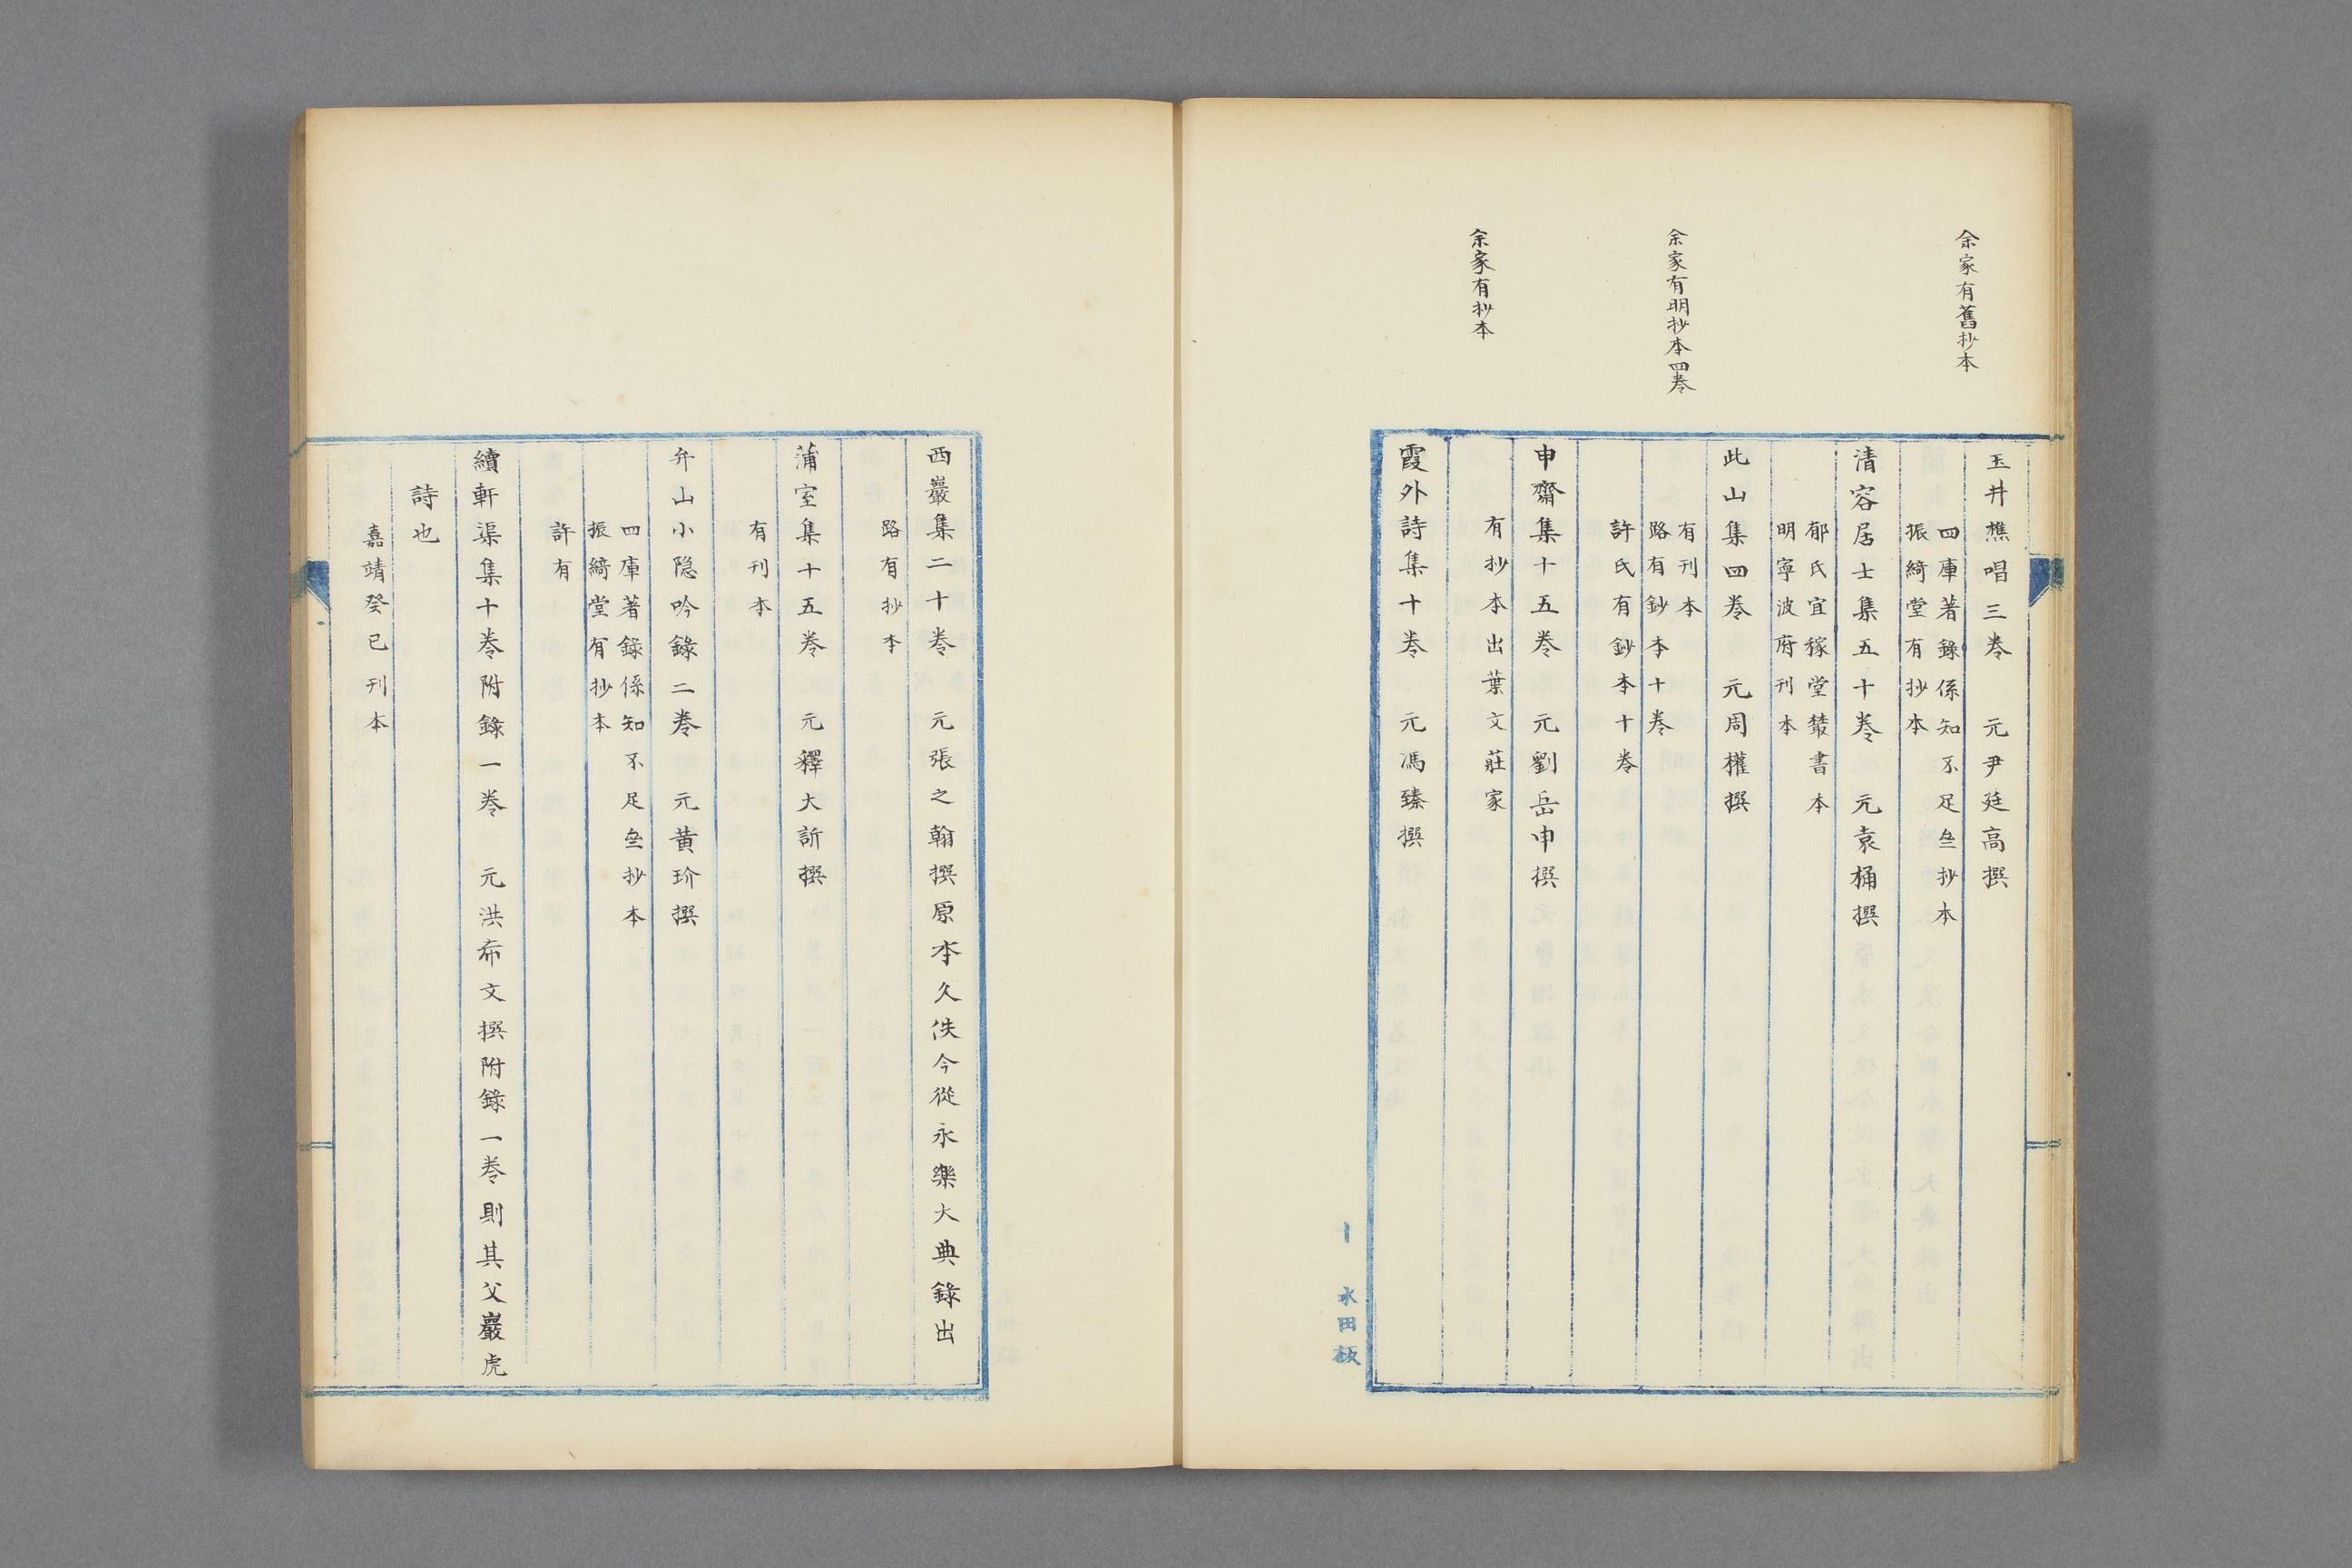 余家有舊抄本
玉井樵唱三卷　元尹廷高撰
四庫著錄係知不足叁抄本
振綺堂有抄本
清容居士集五十卷　元袁桷撰
郁氏宜稼堂藂書本
明寧波府刊本
余家有明抄本四卷
此山集四卷　元周權撰
有刊本
路有鈔本十卷
許氏有鈔本十卷
申齋集十五卷　元劉岳申撰
余家有抄本
有抄本出葉文莊家
霞外詩集十卷　元馮臻撰
十
水田板
西巖集二十卷　元張之翰撰原本久佚今從永樂大典錄出
路有抄本
蒲室集十五卷　元釋大訢撰
有刊本
弁山小隐吟錄二卷　元黄玠撰
四庫著錄係知不足叁抄本
振綺堂有抄本
許有
續軒渠集十卷附錄一卷　元洪希文撰附錄一卷則其父巖虎
詩也
嘉靖癸巳刊本